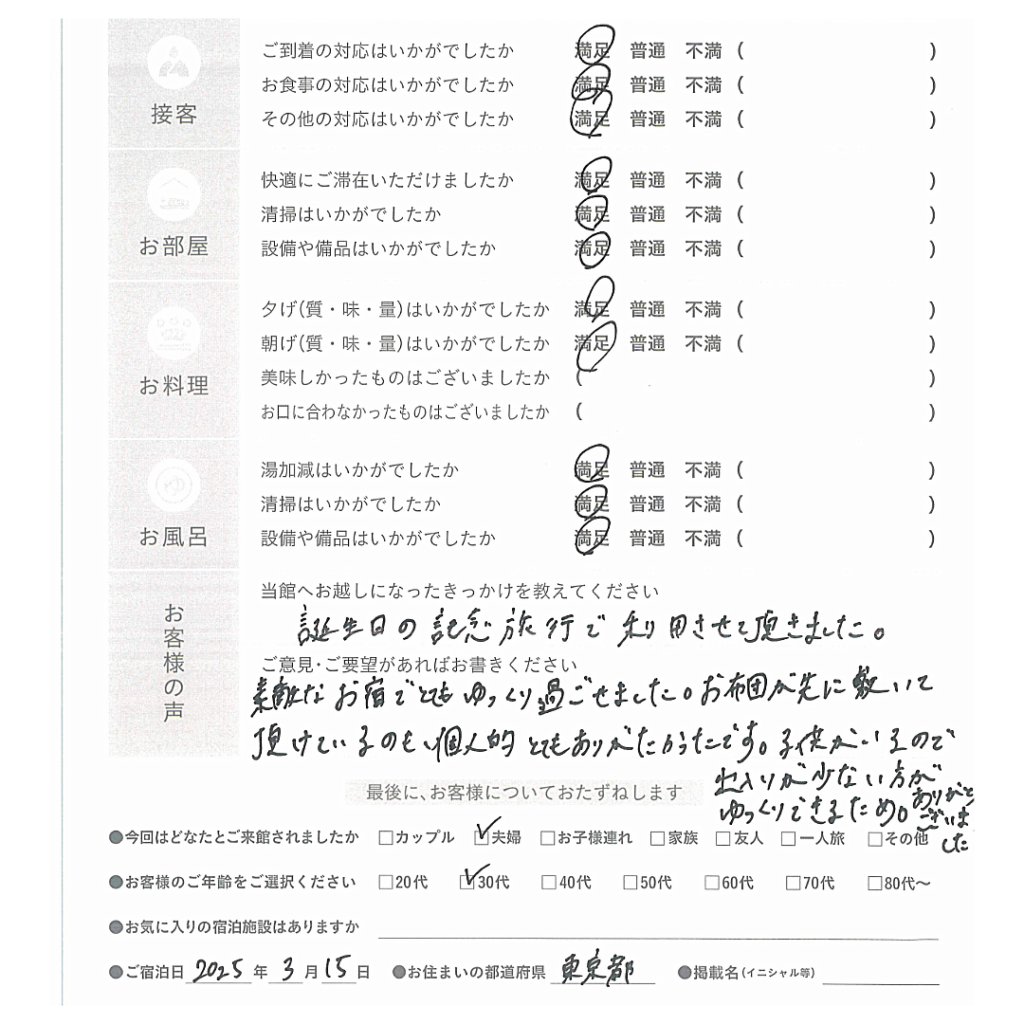 接客
ご到着の対応はいかがでしたか 満足 普通 不満 ( )
お食事の対応はいかがでしたか 満足 普通 不満 ( )
その他の対応はいかがでしたか 満足 普通 不満 ( )
お部屋
快適にご滞在いただけましたか 満足 普通 不満 ( )
清掃はいかがでしたか 満足 普通 不満 ( )
設備や備品はいかがでしたか 満足 普通 不満 ( )
お料理
夕げ(質・味・量)はいかがでしたか 満足 普通 不満 ( )
朝げ(質・味・量)はいかがでしたか 満足 普通 不満 ( )
美味しかったものはございましたか ( )
お口に合わなかったものはございましたか ( )
ゆ
お風呂
湯加減はいかがでしたか 満足 普通 不満 ( )
清掃はいかがでしたか 満足 普通 不満 ( )
設備や備品はいかがでしたか 満足 普通 不満 ( )
お客様の声
当館へお越しになったきっかけを教えてください
誕生日の記念旅行で利用させて頂きました。
ご意見・ご要望があればお書きください
素敵なお宿でとてもゆっくり過ごせました。お布団が先に敷いて
頂けているのも、個人的とてもありがたかったです。子供がいるので
出入りが少ない方が
ゆっくりできるため。ありがとうございました
最後に、お客様についておたずねします
●今回はどなたとご来館されましたか □カップル ☑夫婦 □お子様連れ □家族 □友人 □一人旅 □その他
●お客様のご年齢をご選択ください □20代 ☑30代 □40代 □50代 □60代 □70代 □80代〜
●お気に入りの宿泊施設はありますか
●ご宿泊日 2025年 3月15日 ●お住まいの都道府県 東京都 ●掲載名(イニシャル等)